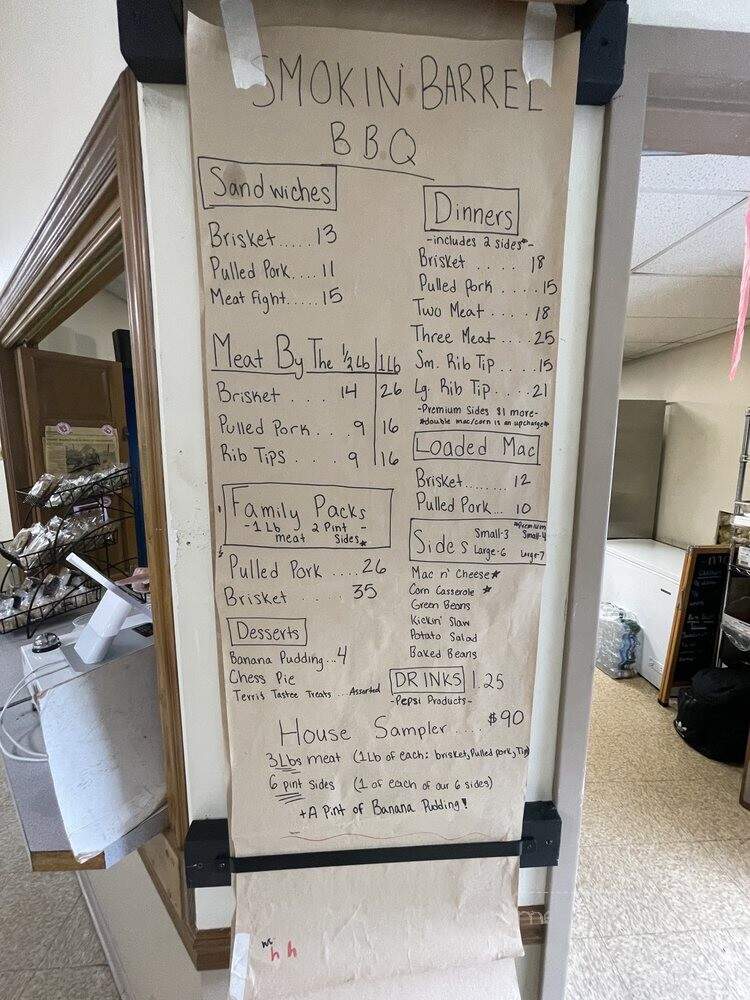 SMOKIN' BARREL
BBQ
Sandwiches
Brisket.....13
Pulled Pork....11
Meat Fight.....15
Meat By The 1/2 Lb | 1 Lb
Brisket.... 14 | 26
Pulled Pork... 9 | 16
Rib Tips.... 9 | 16
Family Packs
-1 Lb meat 2 Pint Sides* -
Pulled Pork ....26
Brisket.... 35
Desserts
Banana Pudding...4
Chess Pie
Terri's Tastee Treats ...Assorted
Dinners
-includes 2 sides*-
Brisket.... 18
Pulled pork....15
Two Meat.... 18
Three Meat....25
Sm. Rib Tip....15
Lg. Rib Tip....21
-Premium Sides $1 more-
*double mac/corn is an upcharge*
Loaded Mac
Brisket........ 12
Pulled Pork... 10
Sides Small-3 Large-6
*Premium Small-4 Large-7
Mac n' Cheese*
Corn Casserole *
Green Beans
Kickin' Slaw
Potato Salad
Baked Beans
DRINKS 1.25
-Pepsi Products-
House Sampler .... $90
3 Lbs meat (1Lb of each: brisket, Pulled pork, Tip)
6 pint sides (1 of each of our 6 sides)
+A Pint of Banana Pudding!
h h